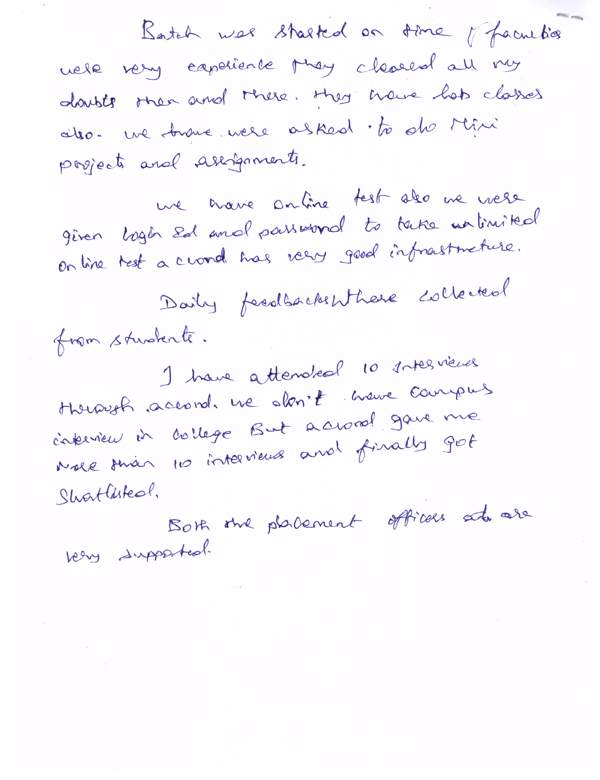 Batch was started on time & faculties
were very experience they cleared all my
doubts then and there. they have lab classes
also. we have were asked to do Mini
projects and assignments.
we have online test also we were
given login Id and password to take unlimited
online test accord has very good infrastructure.
Daily feedbacks Where collected
from students.
I have attended 10 Interviews
through accord. we don't have campus
interview in college But accord gave me
more than 10 interviews and finally got
Shortlisted.
Both the placement officers are
very supported.